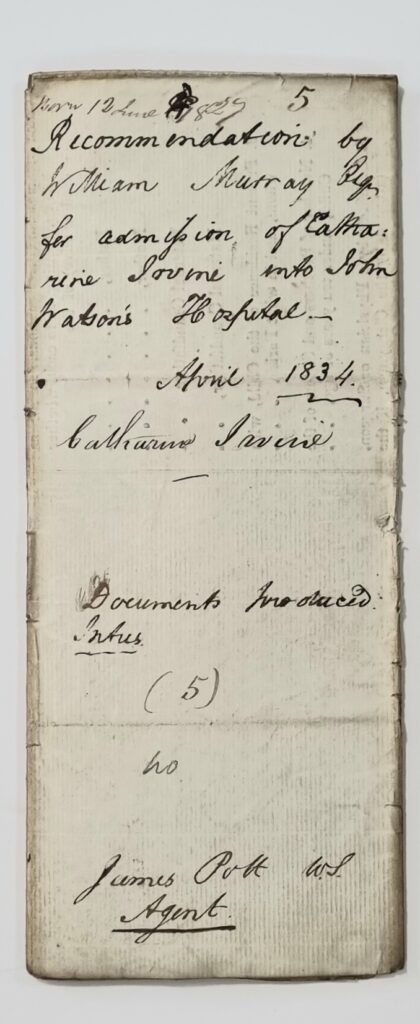 Born 12 June 5
Recommendation by
William Murray Esq.
for admission of Catha:
rine Irvine into John
Watson's Hospital. —
April 1834.
Catharine Irvine
Documents produced
Intus.
(5)
no
James Pott W.S.
Agent.